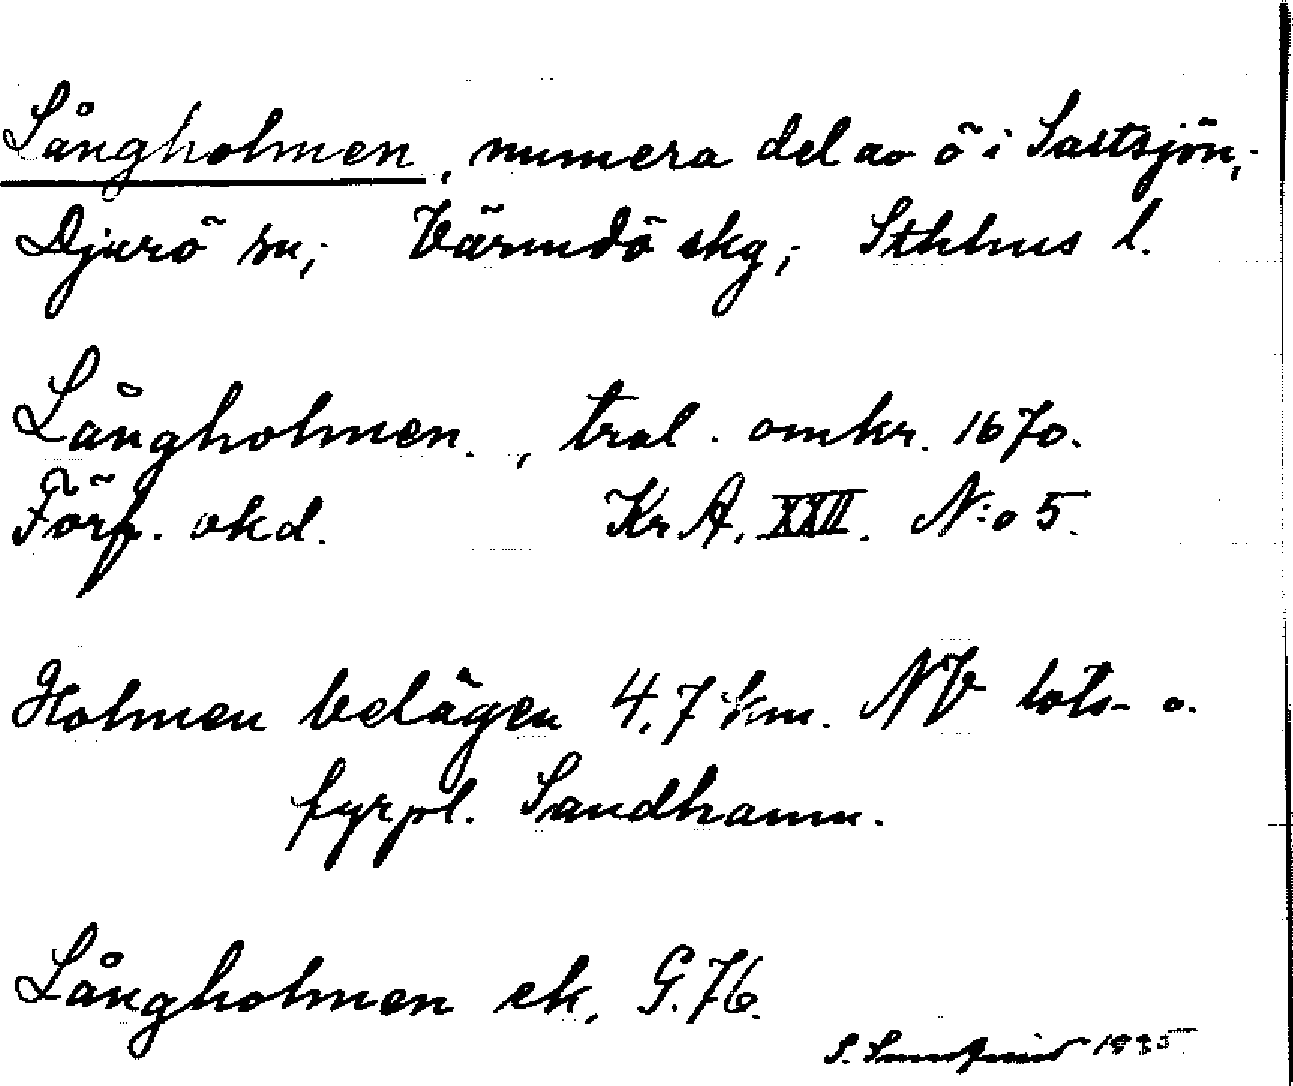 Långholmen, numera del av ö i Saltsjön,
Djurö sn; Värmdö skg; Sthlms l.
Långholmen., tral. omkr. 1670.
Förf. okd. Kr.A. XXII. N:o 5.
Holmen belägen 4,7 km. NV lots- o.
fyrpl. Sandhamn.
Långholmen ek. G.76.
S. 1935